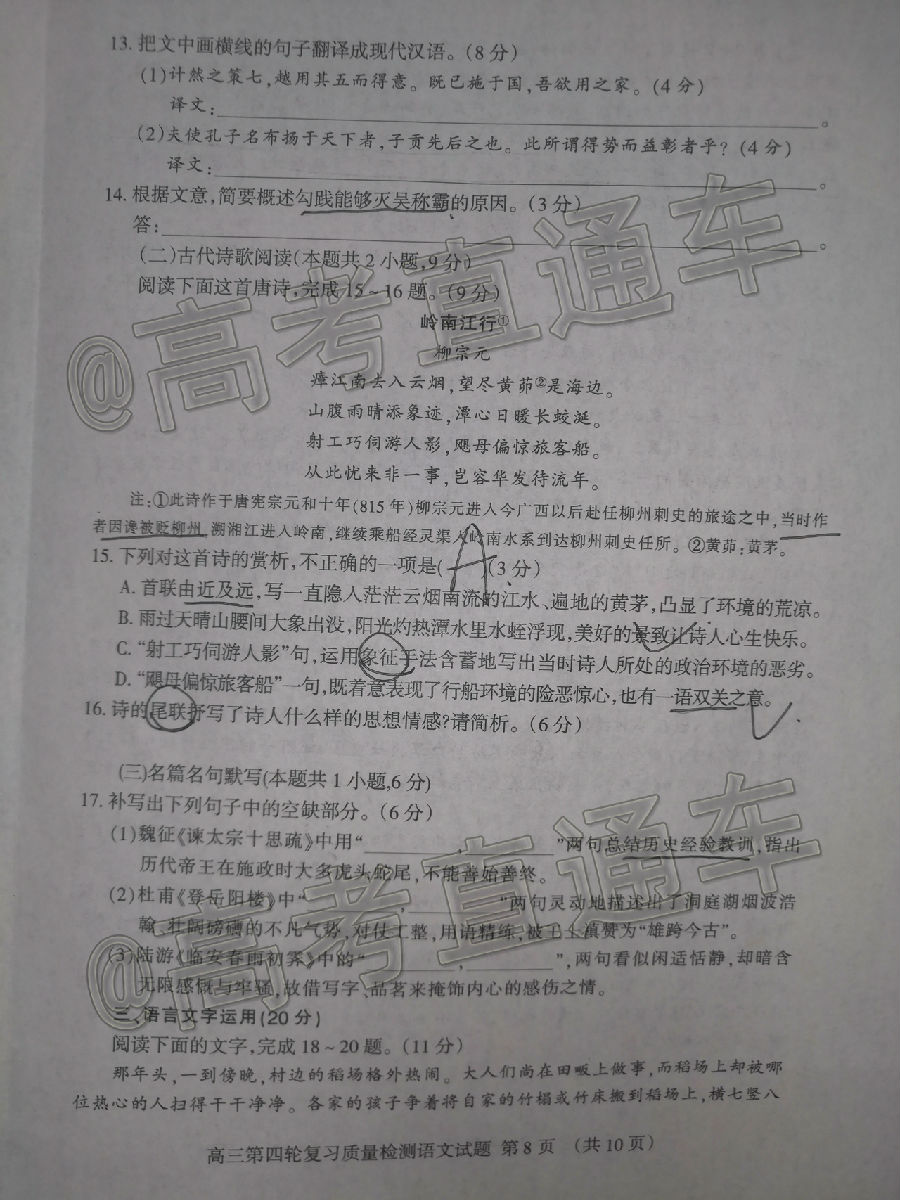 13. 把文中画横线的句子翻译成现代汉语。(8分)
(1)计然之策七,越用其五而得意。既已施于国,吾欲用之家。(4分)
译文:
(2)夫使孔子名布扬于天下者,子贡先后之也。此所谓得势而益彰者乎?(4分)
译文:
14. 根据文意,简要概述勾践能够灭吴称霸的原因。(3分)
答:
(二)古代诗歌阅读(本题共2小题,9分)
阅读下面这首唐诗,完成15~16题。(9分)
岭南江行①
柳宗元
瘴江南去入云烟,望尽黄茆②是海边。
山腹雨晴添象迹,潭心日暖长蛟涎。
射工巧伺游人影,飓母偏惊旅客船。
从此忧来非一事,岂容华发待流年。
注:①此诗作于唐宪宗元和十年(815年)柳宗元进入今广西以后赴任柳州刺史的旅途之中,当时作
者因谗被贬柳州,溯湘江进入岭南,继续乘船经灵渠入岭南水系到达柳州刺史任所。②黄茆:黄茅。
15. 下列对这首诗的赏析,不正确的一项是( A )(3分)
A. 首联由近及远,写一直隐入茫茫云烟南流的江水、遍地的黄茅,凸显了环境的荒凉。
B. 雨过天晴山腰间大象出没,阳光灼热潭水里水蛭浮现,美好的景致让诗人心生快乐。
C. “射工巧伺游人影”句,运用象征手法含蓄地写出当时诗人所处的政治环境的恶劣。
D. “飓母偏惊旅客船”一句,既着意表现了行船环境的险恶惊心,也有一语双关之意。
16. 诗的尾联抒写了诗人什么样的思想情感?请简析。(6分)
(三)名篇名句默写(本题共1小题,6分)
17. 补写出下列句子中的空缺部分。(6分)
(1)魏征《谏太宗十思疏》中用“ , ”两句总结历史经验教训,指出
历代帝王在施政时大多虎头蛇尾,不能善始善终。
(2)杜甫《登岳阳楼》中“ , ”两句灵动地描述出了洞庭湖烟波浩
翰、壮阔磅礴的不凡气势,对仗工整,用语精练,被王士禛赞为“雄跨今古”。
(3)陆游《临安春雨初霁》中的“ , ”,两句看似闲适恬静,却暗含
无限感慨与牢骚,故借写字、品茗来掩饰内心的感伤之情。
三、语言文字运用(20分)
阅读下面的文字,完成18~20题。(11分)
那年头,一到傍晚,村边的稻场格外热闹。大人们尚在田畈上做事,而稻场上却被哪
位热心的人扫得干干净净。各家的孩子争着将自家的竹榻或竹床搬到稻场上,横七竖八
高三第四轮复习质量检测语文试题 第8页 (共10页)
@高考直通车
@高考直通车